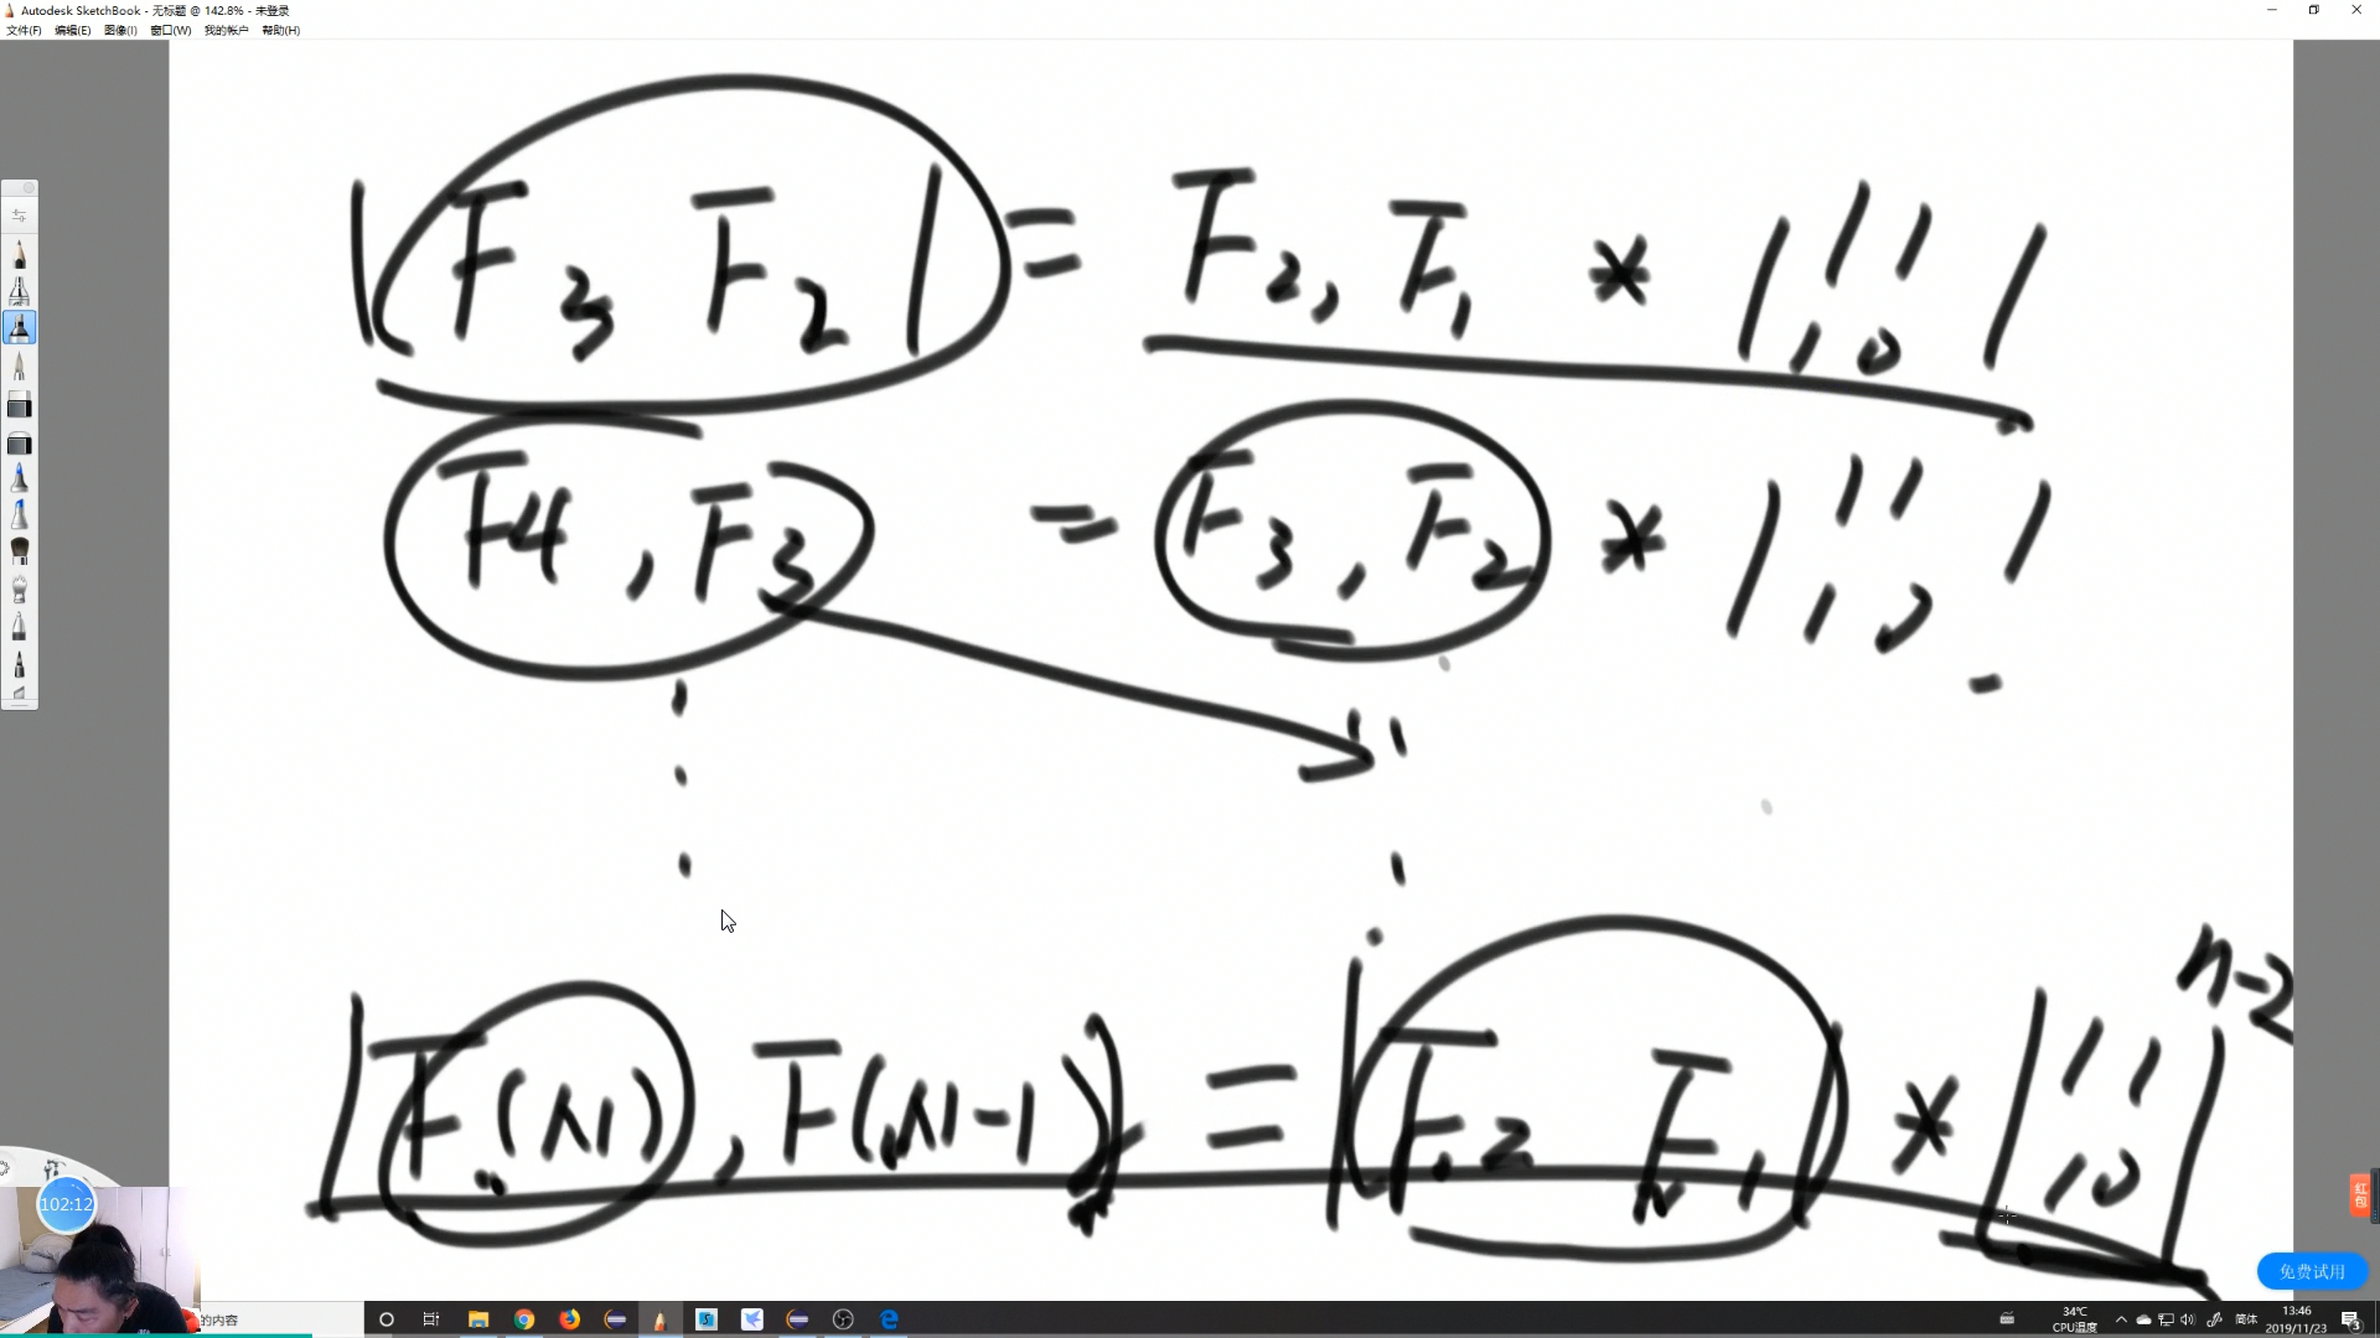 Autodesk SketchBook - 无标题 @ 142.8% - 未登录
文件(F) 编辑(E) 图像(I) 窗口(W) 我的帐户 帮助(H)
|F3 F2| = F2, F1 * |1 1|
|1 0|
F4, F3 = F3, F2 * |1 1|
|1 0|
n-2
|F(N), F(N-1)| = |F2 F1| * |1 1|
|1 0|
102:12
红包
免费试用
的内容
34℃
CPU温度
简体
13:46
2019/11/23
3